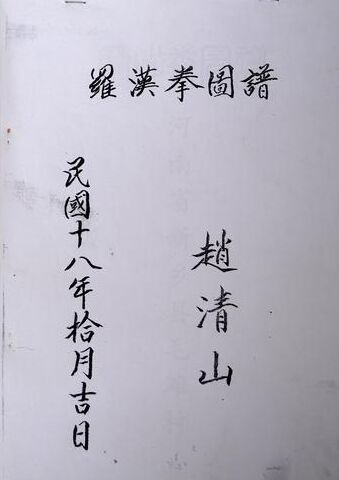 羅漢拳圖譜
趙清山
民國十八年拾月吉日